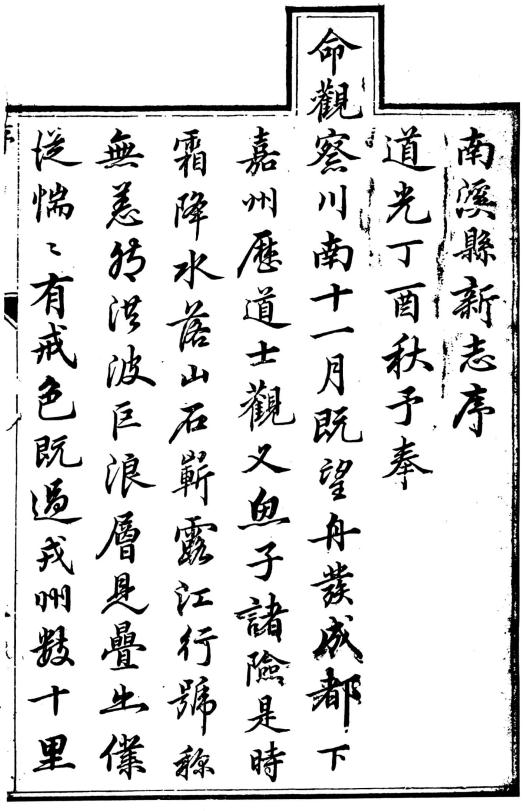 南溪縣新志序
道光丁酉秋予奉
命觀察川南十一月既望舟發成都下
嘉州歷道士觀叉魚子諸險是時
霜降水落山石嶄露江行號称
無恙然洪波巨浪層見疊出僕
從惴〻有戒色既過戎州數十里